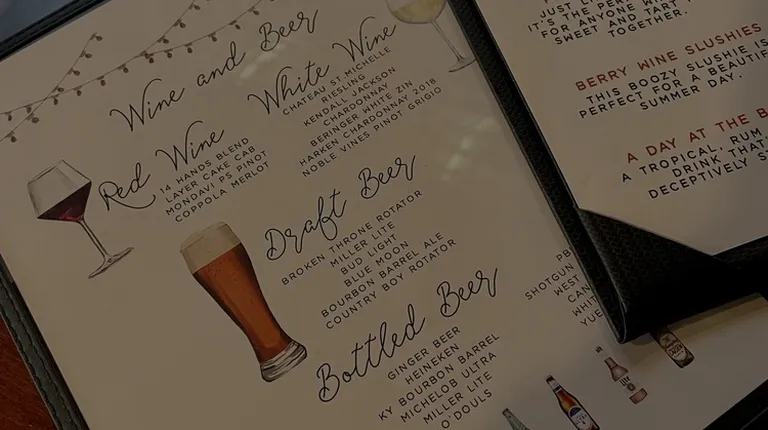 Wine and Beer
Red Wine
14 HANDS BLEND
LAYER CAKE CAB
MONDAVI PS PINOT
COPPOLA MERLOT
White Wine
CHATEAU ST MICHELLE
RIESLING
KENDALL JACKSON
CHARDONNAY
BERINGER WHITE ZIN
HARKEN CHARDONNAY 2018
NOBLE VINES PINOT GRIGIO
Draft Beer
BROKEN THRONE ROTATOR
MILLER LITE
BUD LIGHT
BLUE MOON
BOURBON BARREL ALE
COUNTRY BOY ROTATOR
Bottled Beer
GINGER BEER
HEINEKEN
KY BOURBON BARREL
MICHELOB ULTRA
MILLER LITE
O'DOULS
PB
SHOTGUN
WEST
CAN
WHIT
YUE
JUST L
IT'S THE PER
FOR ANYONE W
SWEET AND TART
TOGETHER.
BERRY WINE SLUSHIES
THIS BOOZY SLUSHIE IS
PERFECT FOR A BEAUTIF
SUMMER DAY.
A DAY AT THE B
A TROPICAL, RUM
DRINK THAT
DECEPTIVELY ST